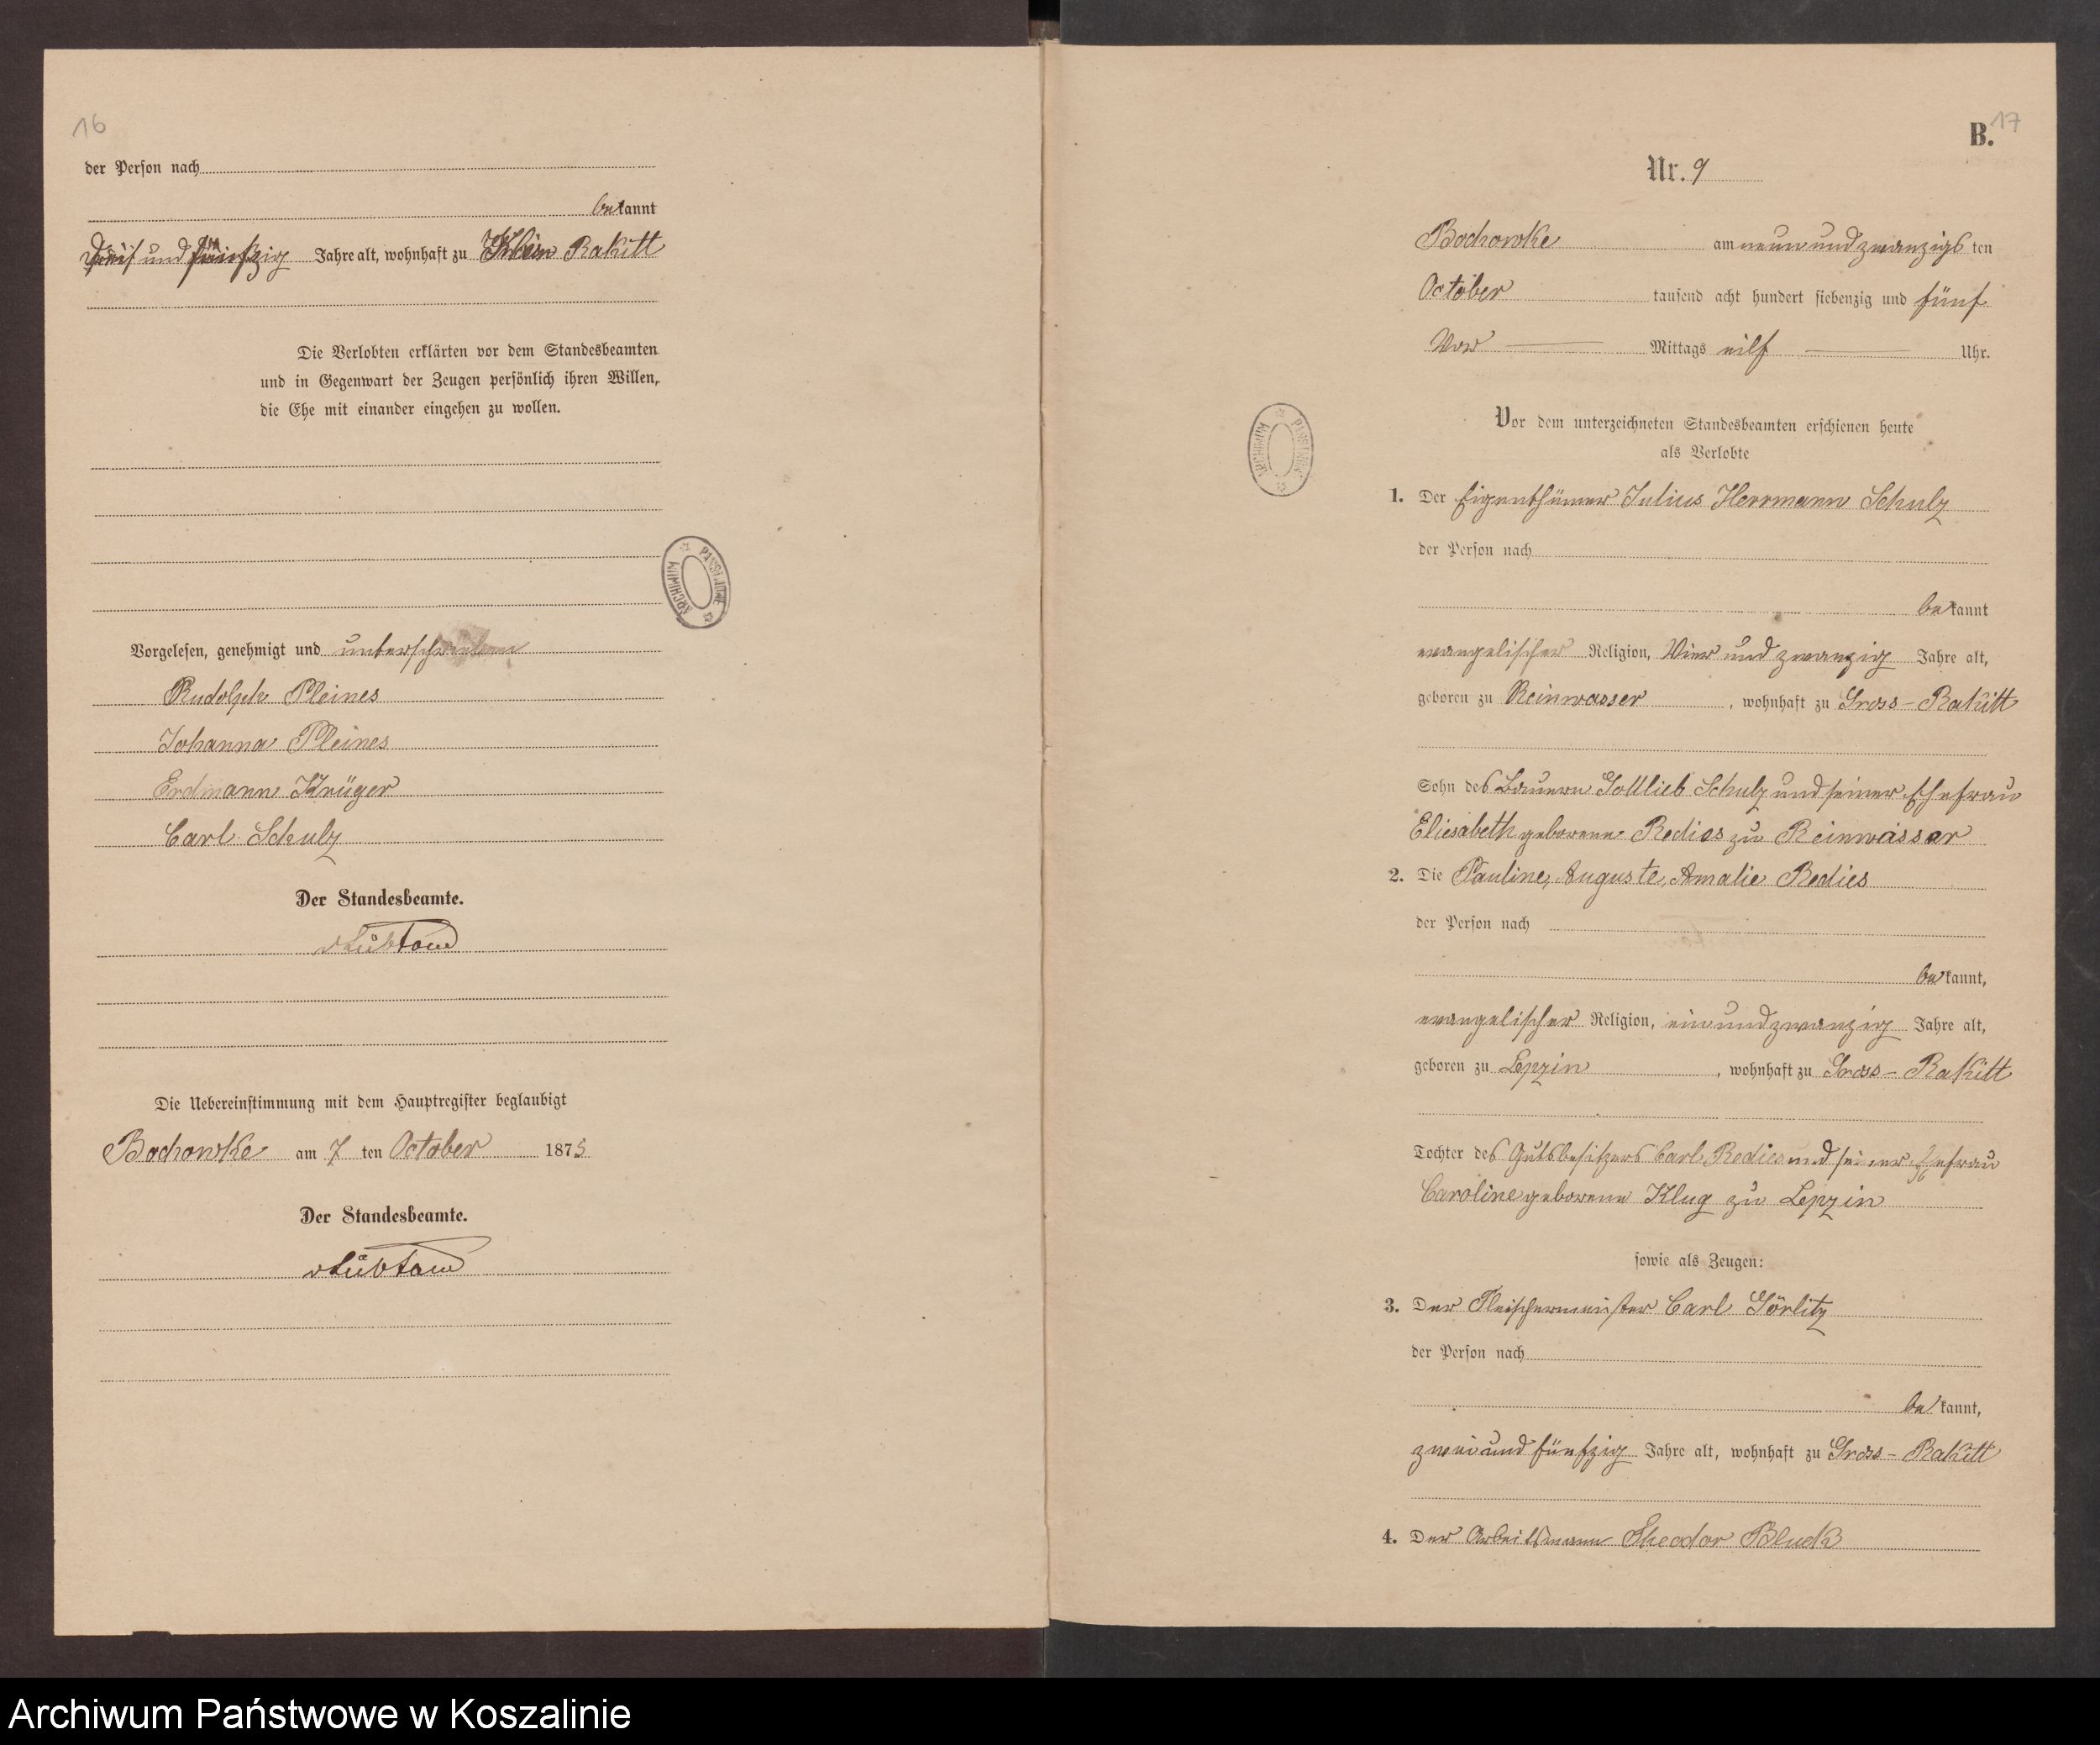 16
der Person nach
bekannt
und Jahre alt, wohnhaft zu Klein Rakitt
Die Verlobten erklärten vor dem Standesbeamten
und in Gegenwart der Zeugen persönlich ihren Willen,
die Ehe mit einander eingehen zu wollen.
ARCHIWUM PAŃSTWOWE
Vorgelesen, genehmigt und unterschrieben
Rudolph Pleines
Johanna Pleines
Erdmann Krüger
Carl Schulz
Der Standesbeamte.
Die Uebereinstimmung mit dem Hauptregister beglaubigt
Bochowke am 7 ten October 1875
Der Standesbeamte.
B. 17
Nr. 9
Bochowke am neun und zwanzigsten
October tausend acht hundert siebenzig und fünf
Vor Mittags eilf Uhr.
ARCHIWUM PAŃSTWOWE
Vor dem unterzeichneten Standesbeamten erschienen heute
als Verlobte
1. Der Eigenthümer Julius Herrmann Schulz
der Person nach
bekannt
evangelischer Religion, Vier und zwanzig Jahre alt,
geboren zu Reinwasser, wohnhaft zu Gross-Rakitt
Sohn des Bauern Gottlieb Schulz und seiner Ehefrau
Eliesabeth geborene Redies zu Reinwasser
2. Die Pauline, Auguste, Amalie Redies
der Person nach
bekannt,
evangelischer Religion, ein und zwanzig Jahre alt,
geboren zu Lepzin, wohnhaft zu Gross-Rakitt
Tochter des Gutsbesitzers Carl Redies und seiner Ehefrau
Caroline geborene Klug zu Lepzin
sowie als Zeugen:
3. Der Fleischermeister Carl Görlitz
der Person nach
bekannt,
zwei und fünfzig Jahre alt, wohnhaft zu Gross-Rakitt
4. Der Arbeitsmann Theodor
Archiwum Państwowe w Koszalinie